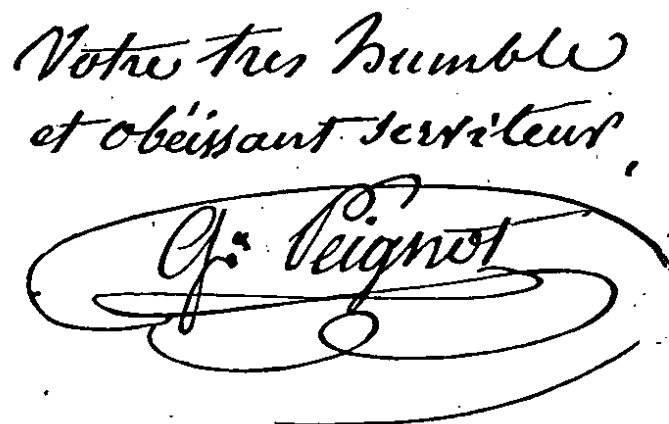 Votre tres humble
et obéissant serviteur,
G. Peignot